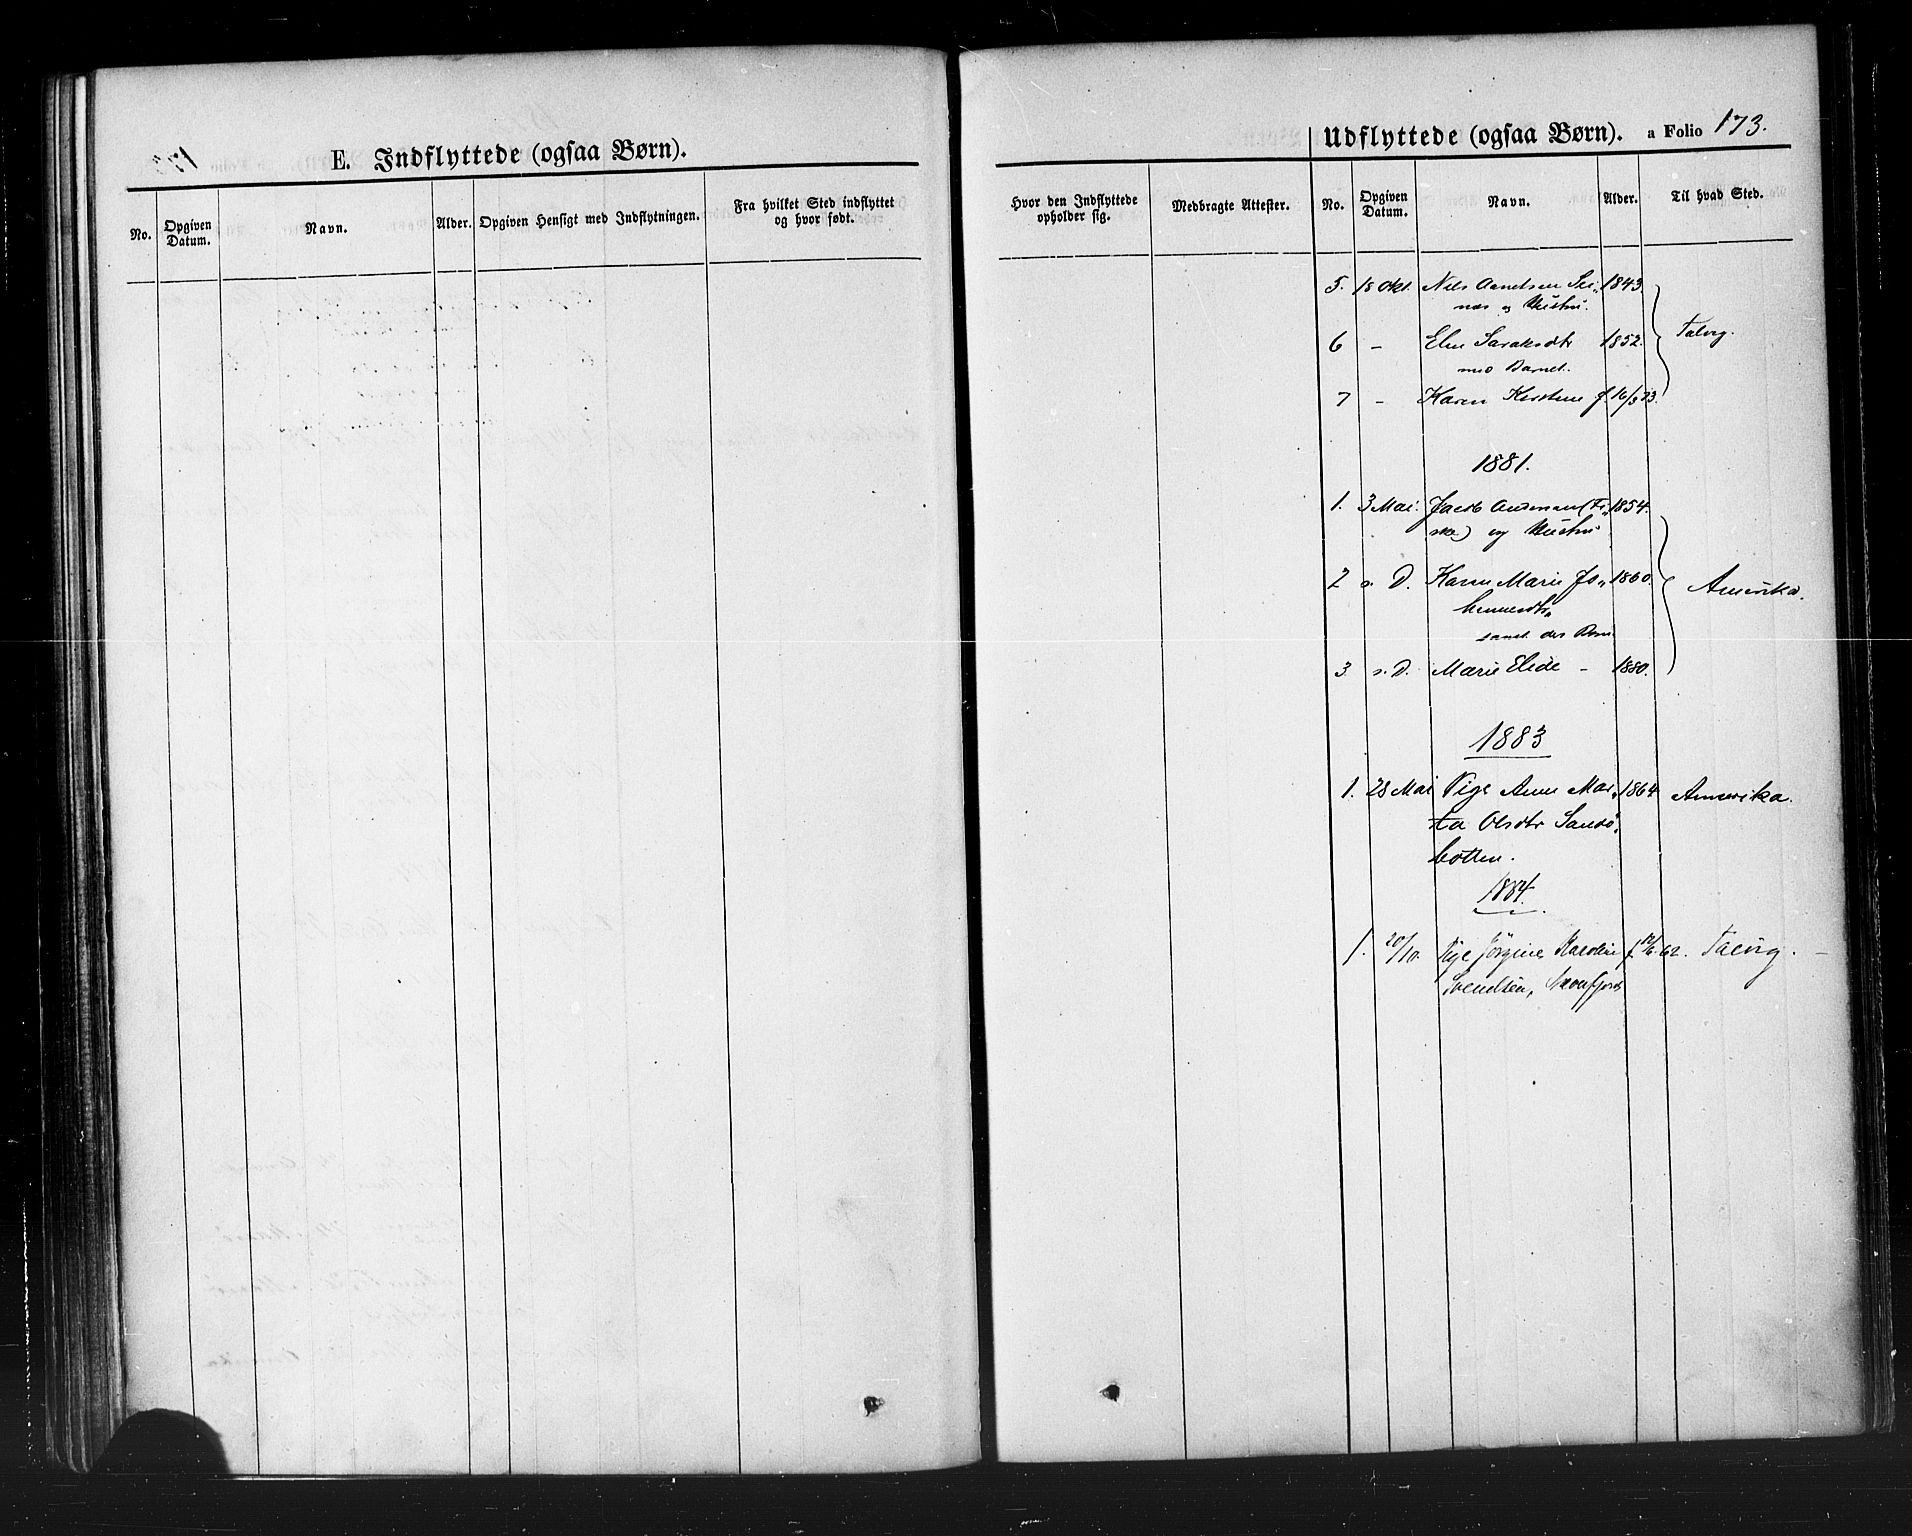 E. Indflyttede (ogsaa Børn).
No.
Opgiven Datum.
Navn.
Alder.
Opgiven Hensigt med Indflytningen.
Fra hvilket Sted indflyttet
og hvor født.
Udflyttede (ogsaa Børn). a Folio 173.
Hvor den Indflyttede
opholder sig.
Medbragte Attester.
No.
Opgiven Datum.
Navn.
Alder.
Til hvad Sted.
5. 18 Okt. Nils 1843.
og Hustru.
6 - 1852. Talvig.
med Barnet.
7 - Karen Kirstine f. 16/3 73.
1881.
1. 3 Mai. Jacob Andersen (Fi„ 1854.
ske) og Hustru
2 s. D. Karen Marie Jo„ 1860. Amerika.
hennesdtr
samt. des Barn
3 s. D. Marie Elide - 1880.
1883
1. 28 Mai Pige Anne Mar„ 1864 Amerika.
ta Olsdtr
botten.
1884.
1. 20/10. Pige Jörgine f. 62. Talvig. -
Svendsen,